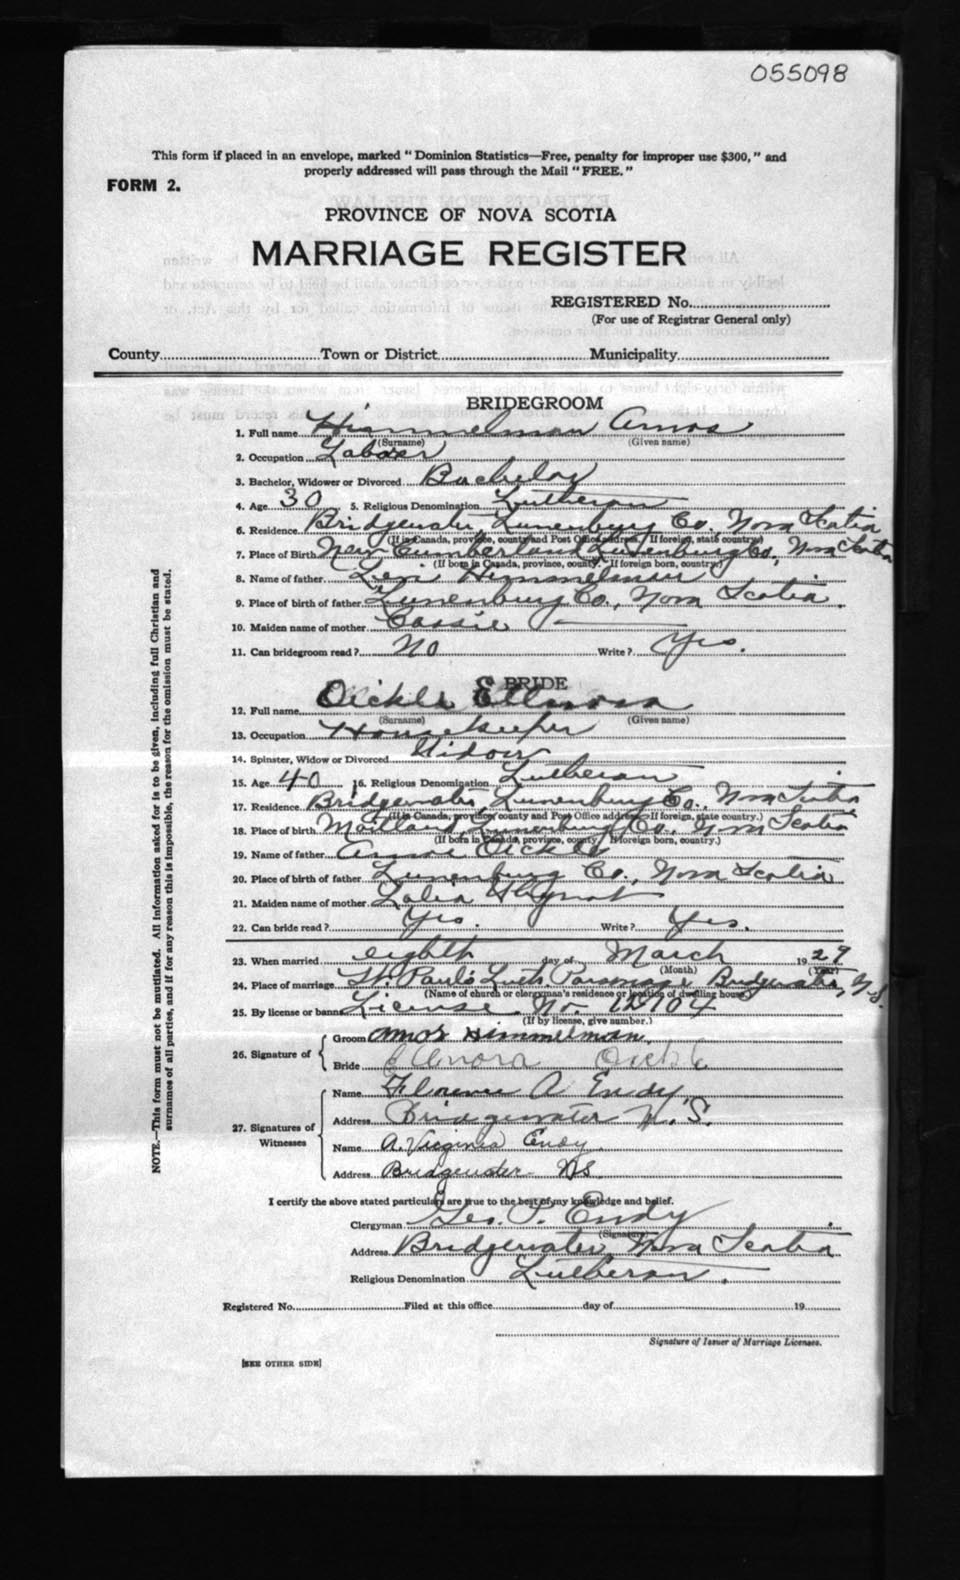 055098
This form if placed in an envelope, marked "Dominion Statistics—Free, penalty for improper use $300," and
properly addressed will pass through the Mail "FREE."
FORM 2.
PROVINCE OF NOVA SCOTIA
MARRIAGE REGISTER
REGISTERED No.
(For use of Registrar General only)
County Town or District Municipality
BRIDEGROOM
1. Full name Himmelman Amos
(Surname) (Given name)
2. Occupation Laborer
3. Bachelor, Widower or Divorced Bachelor
4. Age 30 5. Religious Denomination Lutheran
6. Residence Bridgewater, Lunenburg Co., Nova Scotia
(If in Canada, province, county and Post Office address. If foreign, state country.)
7. Place of Birth New Cumberland Lunenburg Co., Nova Scotia
(If born in Canada, province, county. If foreign born, country.)
8. Name of father Himmelman
9. Place of birth of father Lunenburg Co., Nova Scotia.
10. Maiden name of mother Cassie —
11. Can bridegroom read? No Write? Yes.
BRIDE
12. Full name Oickle Ellnora
(Surname) (Given name)
13. Occupation Housekeeper
14. Spinster, Widow or Divorced Widow
15. Age 40 16. Religious Denomination Lutheran
17. Residence Bridgewater, Lunenburg Co., Nova Scotia
(If in Canada, province, county and Post Office address. If foreign, state country.)
18. Place of birth Maitland, Lunenburg Co., Nova Scotia
(If born in Canada, province, county. If foreign born, country.)
19. Name of father Oickle
20. Place of birth of father Lunenburg Co., Nova Scotia
21. Maiden name of mother
22. Can bride read? Yes. Write? Yes.
23. When married eighth day of March 1929
(Month) (Year)
24. Place of marriage St. Paul's Luth. Parsonage Bridgewater, N.S.
(Name of church or clergyman's residence or location of dwelling house)
25. By license or banns License No. 12704
(If by license, give number.)
26. Signature of
Groom Amos Himmelman
Bride Ellnora Oickle
27. Signatures of Witnesses
Name Florence A Endy
Address Bridgewater N.S.
Name A. Virginia Endy
Address Bridgewater NS
I certify the above stated particulars are true to the best of my knowledge and belief.
Clergyman Geo. P. Endy
(Signature)
Address Bridgewater, Nova Scotia
Religious Denomination Lutheran.
Registered No. Filed at this office day of 19
Signature of Issuer of Marriage Licenses.
[SEE OTHER SIDE]
NOTE.—This form must not be mutilated. All information asked for is to be given, including full Christian and
surnames of all parties, and if for any reason this is impossible, the reason for the omission must be stated.